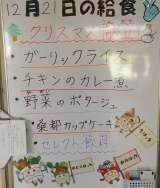 12月21日の給食
クリスマス献立
ガーリックライス
チキンのカレー煮
野菜のポタージュ
カップケーキ
セレクト飲料